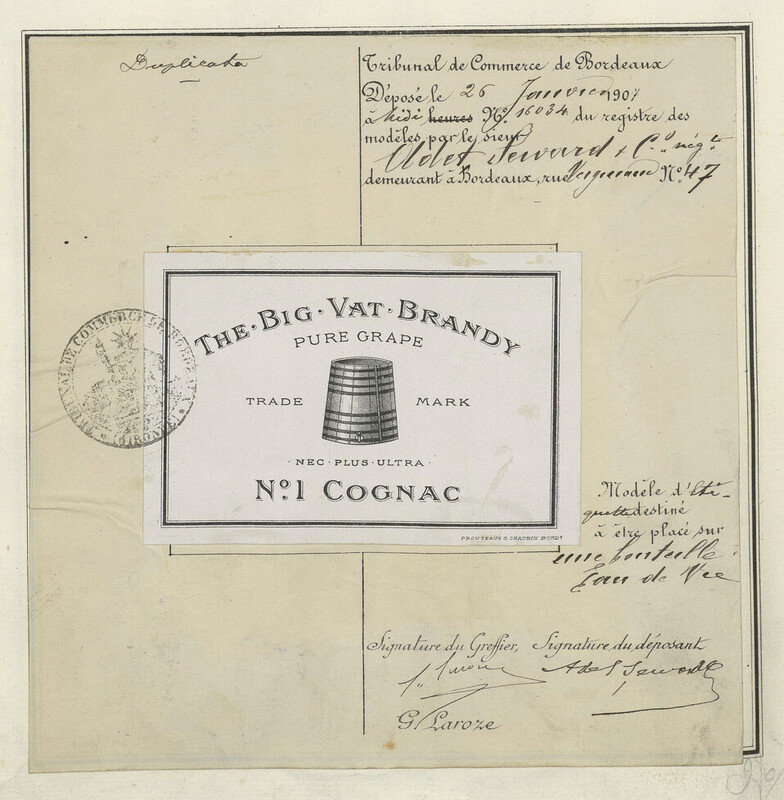 Duplicata
Tribunal de Commerce de Bordeaux
Déposé le 26 Janvier 1907
à Midi heures No. 16034 du registre des
modèles par le sieur
Adet Seward & Co. négts
demeurant à Bordeaux, rue No. 47
TRIBUNAL DE COMMERCE DE BORDEAUX
(GIRONDE)
THE · BIG · VAT · BRANDY
PURE GRAPE
TRADE MARK
· NEC · PLUS · ULTRA ·
No. 1 COGNAC
PROUTEAUX & CHAUBIN BORDx.
Modèle d'éti-
quette destiné
à être placé sur
une bouteille
Eau de Vie
Signature du Greffier, Signature du déposant
Adet Seward
G. Laroze